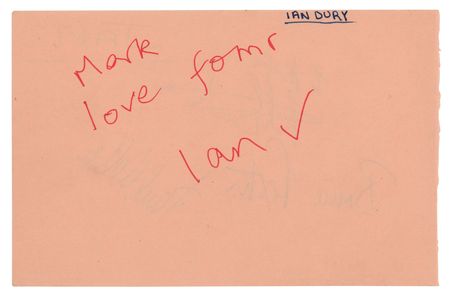 IAN DURY
Mark
love fomr
Ian ✓